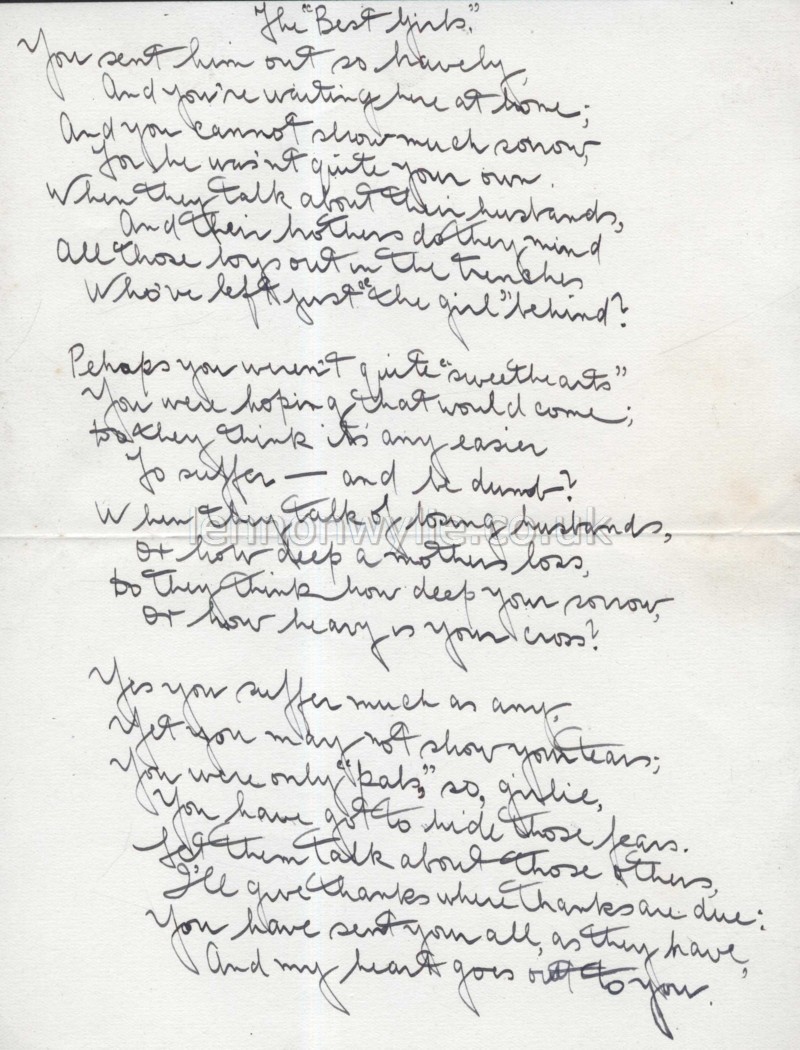 The "Best Girls."
You sent him out so bravely,
And you're waiting here at home;
And you cannot show much sorrow,
For he wasn't quite your own.
When they talk about their husbands,
And their brothers do they mind
All those boys out in the trenches
Who've left just "the girl" behind?
Pehaps you weren't quite "sweethearts"
You were hoping that would come;
Do they think it's any easier
To suffer — and be dumb?
When they talk of losing husbands,
lennonwylie.co.uk
Or how deep a mothers loss,
Do they think how deep your sorrow,
Or how heavy is your cross?
Yes you suffer much as any,
Yet you may not show your tears;
You were only "pals," so, girlie,
You have got to hide those fears.
Let them talk about those others,
I'll give thanks where thanks are due:
You have sent your all, as they have,
And my heart goes out to you.